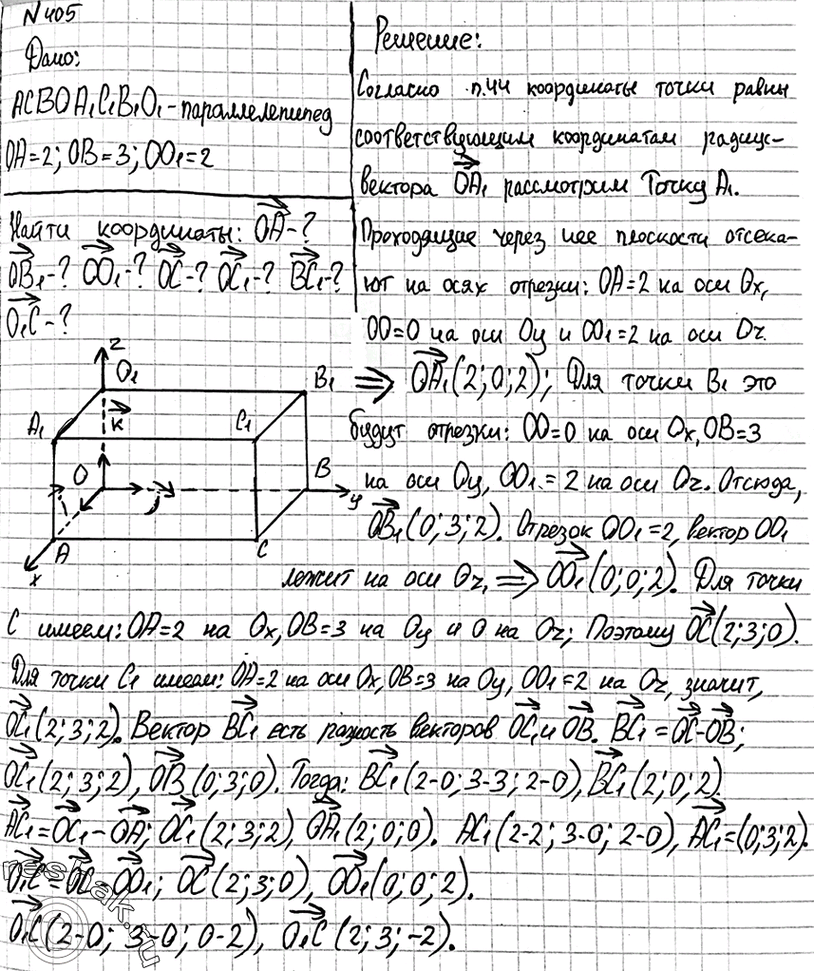 N 405
Дано:
ACBOA₁C₁B₁O₁ - параллелепипед
OA=2; OB=3; OO₁=2
Найти координаты: OA-?
OB₁-? OO₁-? OC-? OC₁-? BC₁-?
O₁C-?
Решение:
Согласно п.44 координаты точки равны
соответствующим координатам радиус-
вектора OA₁ рассмотрим Точку A₁.
Проходящие через нее плоскости отсека-
ют на осях отрезки: OA=2 на оси Ox,
OO=0 на оси Oy и OO₁=2 на оси Oz
⇒ OA₁(2;0;2); Для точки B₁ это
будут отрезки: OO=0 на оси Ox, OB=3
на оси Oy, OO₁=2 на оси Oz. Отсюда,
OB₁(0;3;2). Отрезок OO₁=2, вектор OO₁
лежит на оси Oz, ⇒ OO₁(0;0;2). Для точки
z
O₁
B₁
A₁
C₁
k
O
B
i
j
y
A
C
x
C имеем: OA=2 на Ox, OB=3 на Oy и 0 на Oz; Поэтому OC(2;3;0).
Для точки C₁ имеем: OA=2 на оси Ox, OB=3 на Oy, OO₁=2 на Oz, значит,
OC₁(2;3;2). Вектор BC₁ есть разность векторов OC₁ и OB. BC₁=OC-OB;
OC₁(2;3;2), OB(0;3;0). Тогда: BC₁(2-0; 3-3; 2-0), BC₁(2;0;2).
AC₁=OC₁-OA; OC₁(2;3;2), OA₁(2;0;0). AC₁(2-2; 3-0; 2-0), AC₁=(0;3;2).
O₁C=OC-OO₁; OC(2;3;0), OO₁(0;0;2).
O₁C(2-0; 3-0; 0-2), O₁C(2;3;-2).
reshak.ru